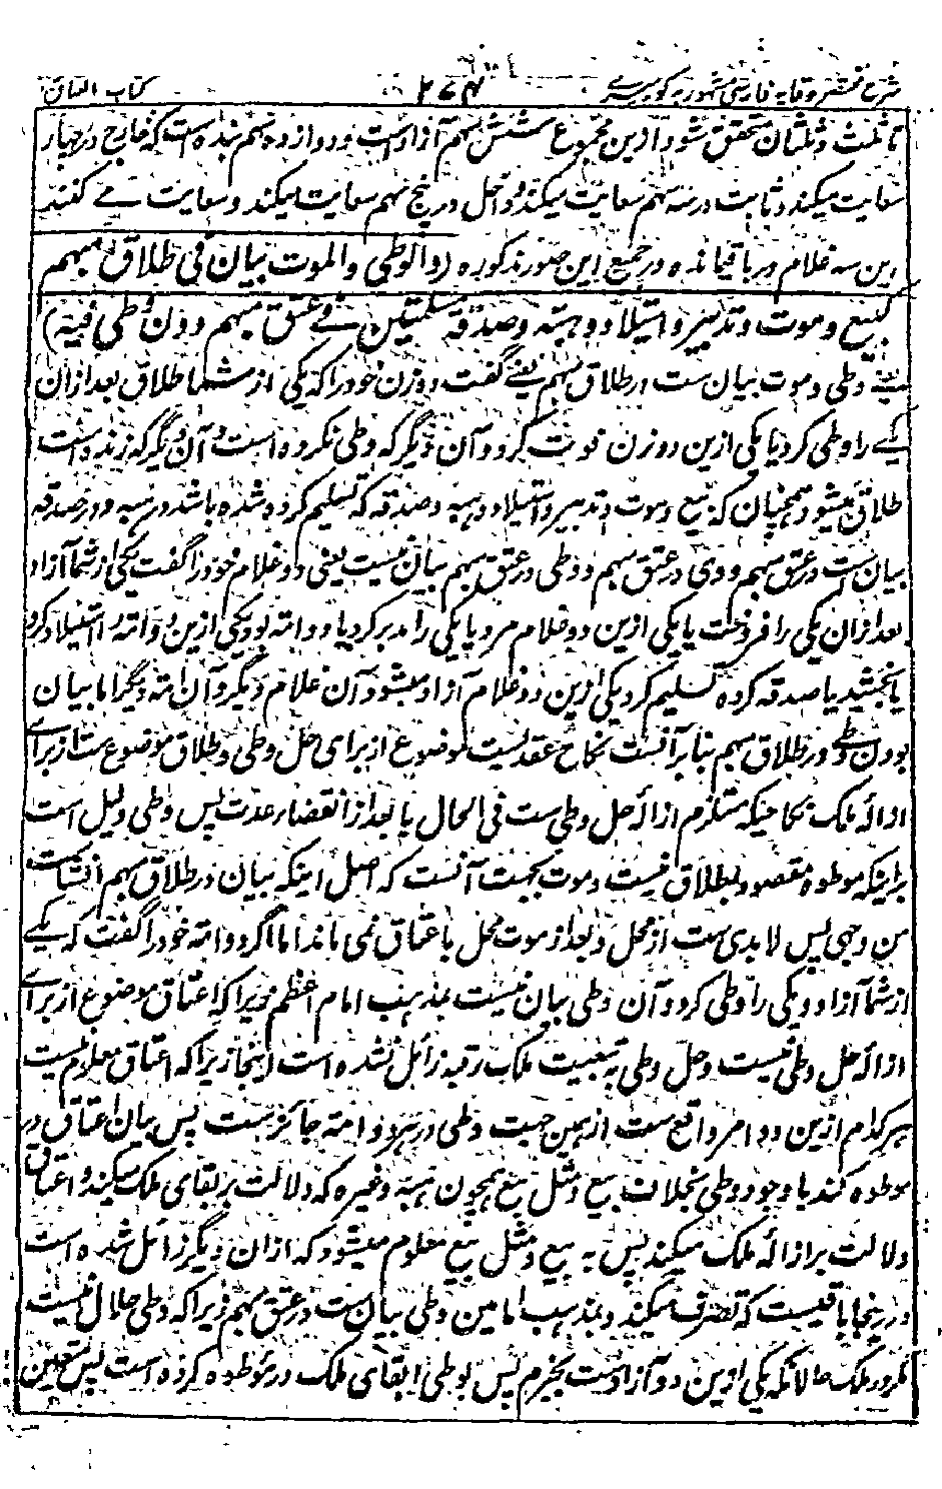 شرح مختصر وقایه فارسی مشهور به کور میری ۲۶۴ کتاب العتاق
تا ثلث و ثلثان متحقق شود ازین مجموع شش سهم آزاد است و دوازده سهم بنده است که خارج در چهار
سعایت میکند و ثابت در سه سهم سعایت میکند و داخل در پنج سهم سعایت میکند و سعایت مے کنند
این سه غلام در باقیمانده در جمیع این صور مذکوره (والوطی والموت بیان فی طلاق مبهم
کبیع وموت وتدبیر واستیلاد وهبة وصدقة مسلمتین فے عتق مبهم دون وطی فیه)
یعنے وطی و موت بیان ست در طلاق مبهم یعنے گفت دو زن خود را که یکی از شما طلاق بعد ازان
یکے را وطی کرد یا یکی ازین دو زن فوت کرد و آن دیگر که وطی نکرده است و آن دیگر که زنده است
طلاق میشود همچنان که بیع و موت و تدبیر و استیلاد و هبه و صدقه که تسلیم کرده شده باشد در هبه و در صدقه
بیان ست در عتق مبهم و وطی در عتق مبهم بیان نیست یعنی دو غلام خود را گفت یکی از شما آزاد
بعد ازان یکی را فروخت یا یکی ازین دو غلام مرد یا یکی را مدبر کرد یا دو امه بود یکی ازین دو امه را استیلاد کرد
یا بخشید یا صدقه کرده تسلیم کرد یکی ازین دو غلام آزاد میشود آن غلام دیگر و آن امه دیگر اما بیان
بودن وطے در طلاق مبهم بنابر آنست نکاح عقدیست موضوع از برای حل وطی و طلاق موضوع ست از براے
ازاله ملک نکاحیکه مستلزم ازاله حل وطی ست فی الحال یا بعد از انقضاء عدت پس وطی دلیل است
براینکه موطوه مقصود بطلاق نیست و موت بجهت آنست که اصل اینکه بیان در طلاق مبهم انشاست
من وجهی پس لابدی ست از محل و بعد از موت محل باعتاق نمی ماند اما اگر دو امه خود را گفت که یکے
از شما آزاد و یکی را وطی کرد و آن وطی بیان نیست بمذهب امام اعظم زیرا که اعتاق موضوع از براے
ازاله حل وطی نیست و حل وطی به تبعیت ملک رقبه زائل نشده است اینجا زیرا که اعتاق معلوم نیست
بهر کدام ازین دو امر واقع ست از همین جهت وطی در هر دو امه جائز ست پس بیان اعتاق در
موطوه کند با وجود وطی بخلاف بیع و مثل بیع همچون هبه و غیره که دلالت بر بقای ملک میکند و اعتاق
دلالت بر ازاله ملک میکند پس به بیع و مثل بیع معلوم میشود که ازان دیگر زائل شده است
و درینجا باقیست که تصرف میکند و بمذهب امامین وطی بیان ست در عتق مبهم زیرا که وطی حلال نیست
مگر در ملک حالانکه یکی ازین دو آزادست بجزم پس بوطی ابقای ملک در موطوه کرده است پس متعین